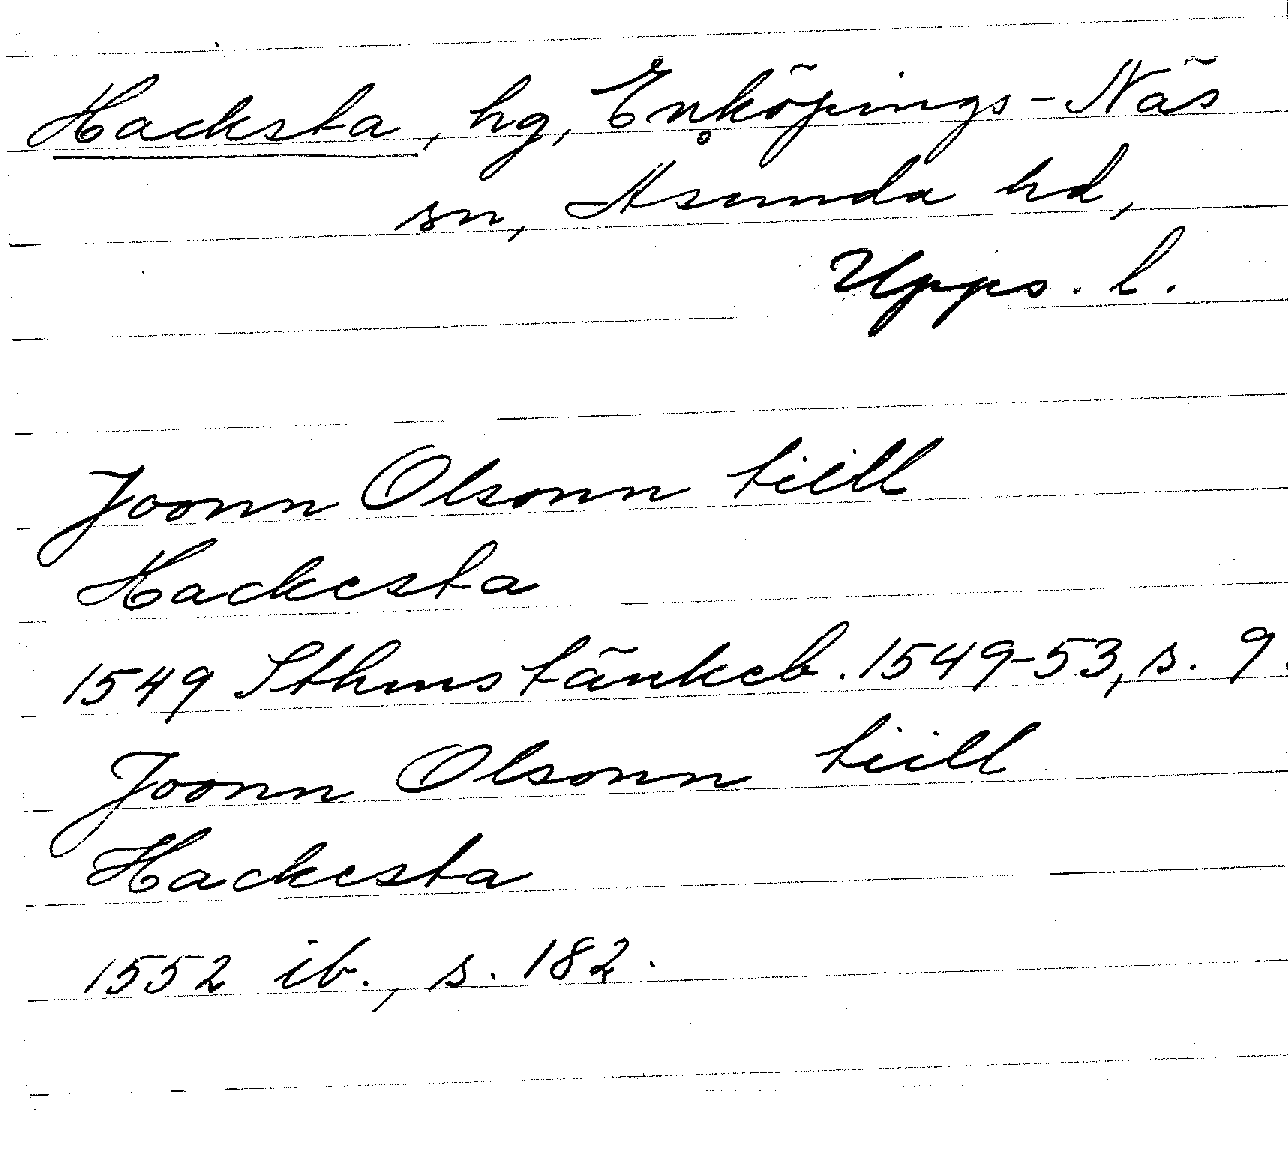 Hacksta, hg, Enköpings-Näs
sn, Åsunda hd,
Upps. l.
Joonn Olsonn tiill
Hackesta
1549 Sthms tänkeb. 1549-53, s. 9.
Joonn Olsonn tiill
Hackesta
1552 ib., s. 182.